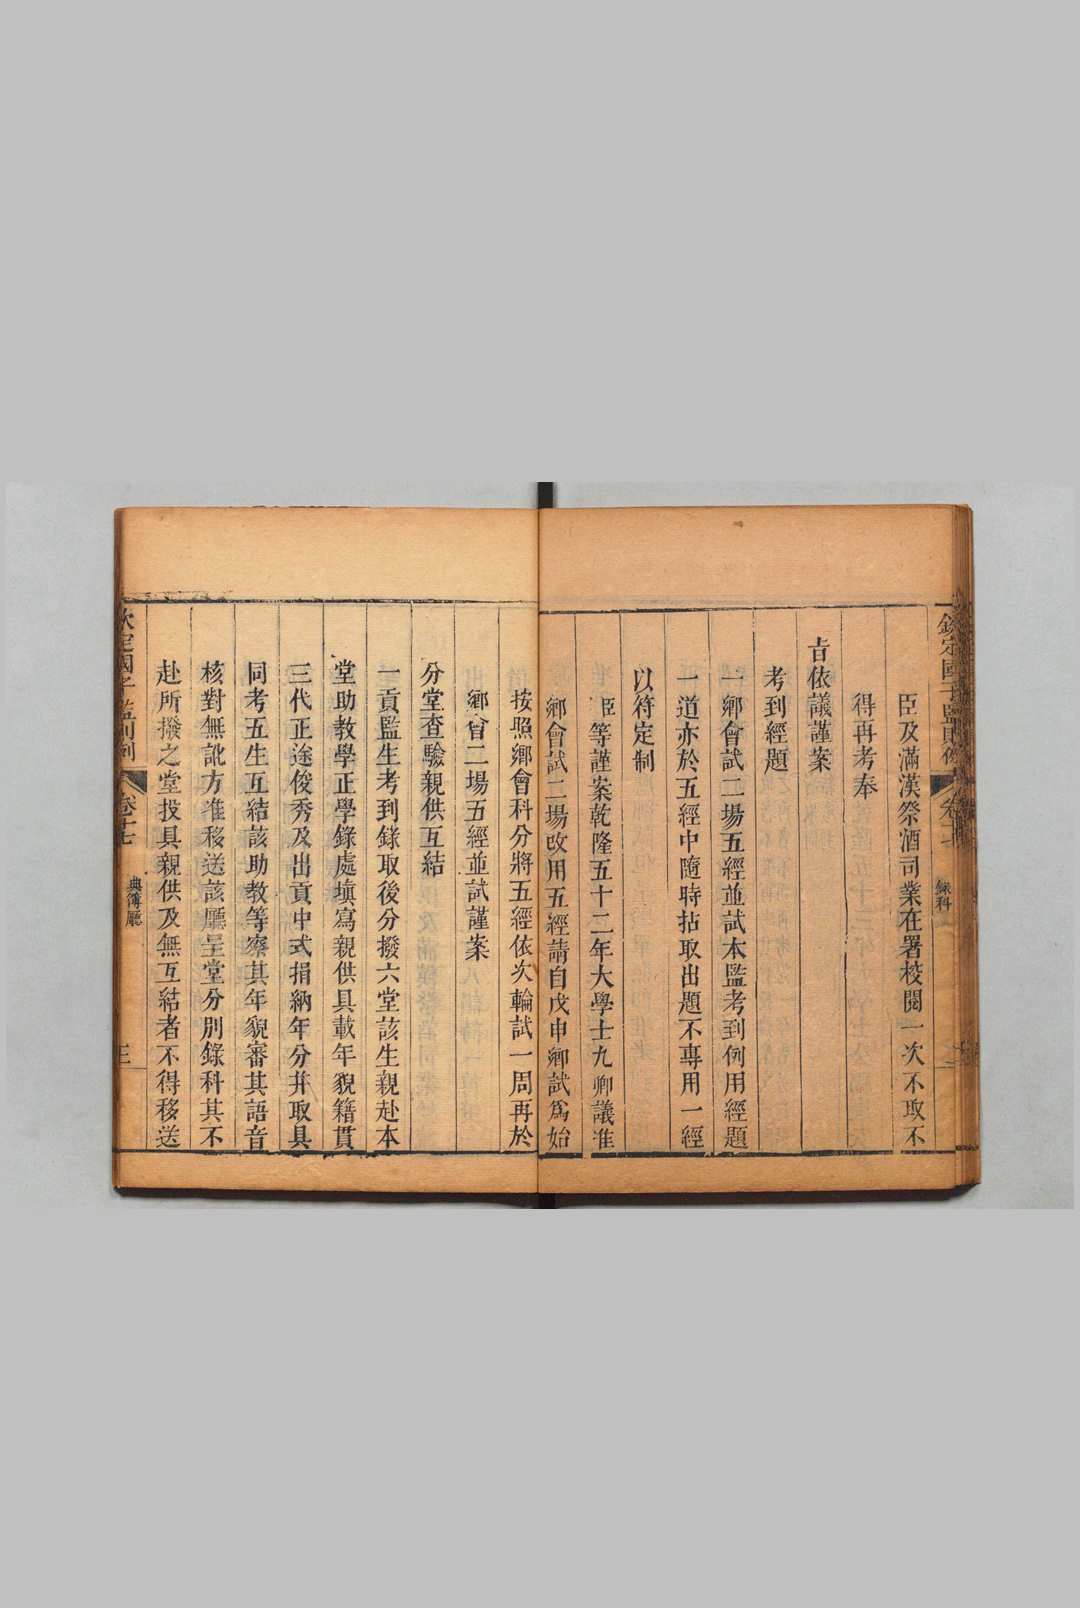 欽定國子監則例 卷十七 錄科 二
臣及滿漢祭酒司業在署校閱一次不取不
得再考奉
旨依議謹案
考到經題
一鄉會試二場五經並試本監考到例用經題
一道亦於五經中隨時拈取出題不專用一經
以符定制
臣等謹案乾隆五十二年大學士九卿議准
鄉會試二場改用五經請自戊申鄉試爲始
按照鄉會科分將五經依次輪試一周再於
鄉會二場五經並試謹案
分堂查驗親供互結
一貢監生考到錄取後分撥六堂該生親赴本
堂助教學正學錄處塡寫親供具載年貌籍貫
三代正途俊秀及出貢中式捐納年分并取具
同考五生互結該助教等察其年貌審其語音
核對無訛方准移送該廳呈堂分別錄科其不
赴所撥之堂投具親供及無互結者不得移送
欽定國子監則例 卷十七 典簿廳 三